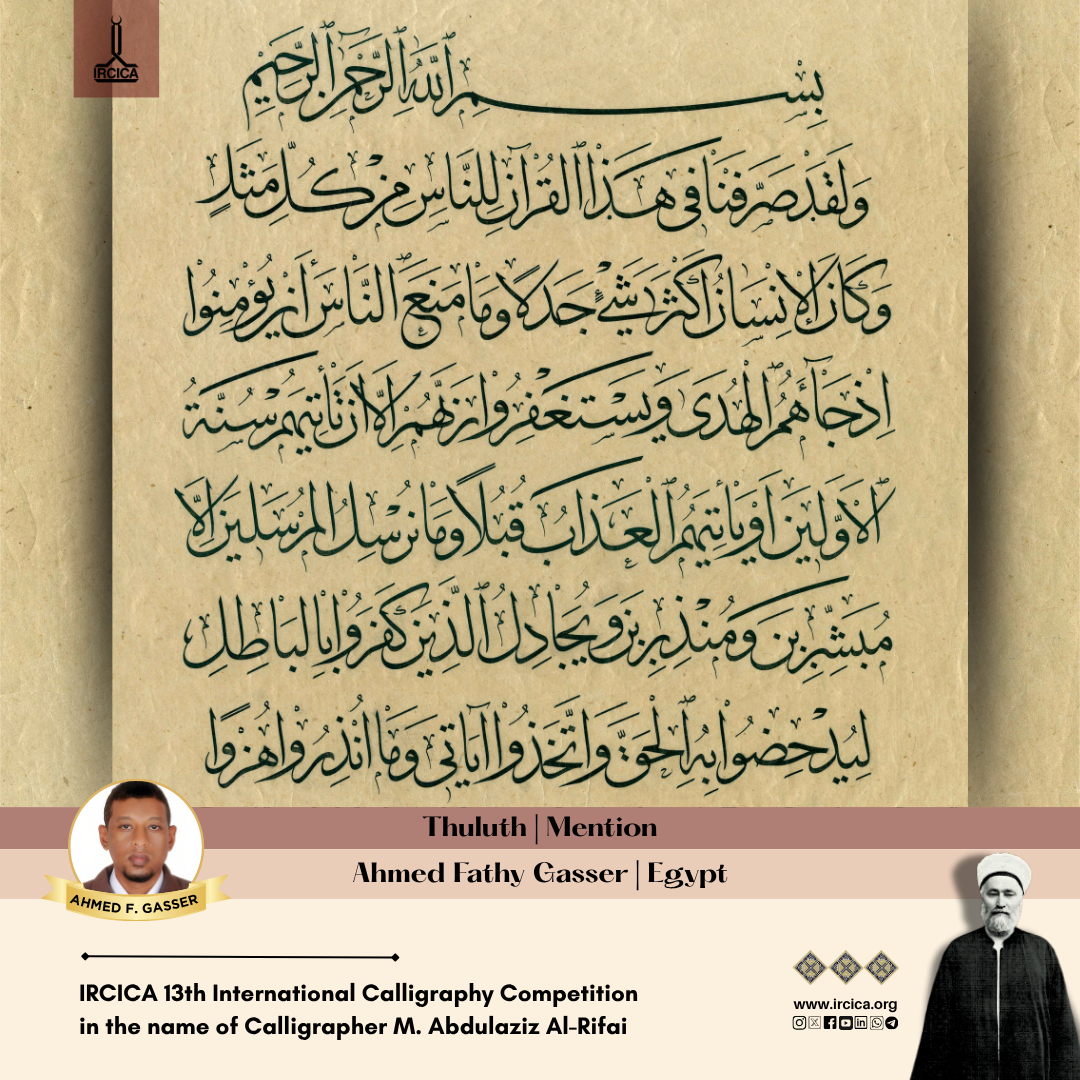 IRCICA
بِسْمِ ٱللَّهِ ٱلرَّحْمَٰنِ ٱلرَّحِيمِ
وَلَقَدْ صَرَّفْنَا فِى هَٰذَا ٱلْقُرْآنِ لِلنَّاسِ مِنْ كُلِّ مَثَلٍ
وَكَانَ ٱلْاِنْسَانُ أَكْثَرَ شَىْءٍ جَدَلًا وَمَا مَنَعَ ٱلنَّاسَ أَنْ يُؤْمِنُوا
اِذْ جَآءَهُمُ ٱلْهُدَى وَيَسْتَغْفِرُوا رَبَّهُمْ اِلَّا أَنْ تَأْتِيَهُمْ سُنَّةُ
ٱلْاَوَّلِينَ اَوْ يَأْتِيَهُمُ ٱلْعَذَابُ قُبُلًا وَمَا نُرْسِلُ ٱلْمُرْسَلِينَ اِلَّا
مُبَشِّرِينَ وَمُنْذِرِينَ وَيُجَادِلُ ٱلَّذِينَ كَفَرُوا بِالْبَاطِلِ
لِيُدْحِضُوا بِهِ ٱلْحَقَّ وَاتَّخَذُوا آيَاتِى وَمَا اُنْذِرُوا هُزُوًا
Thuluth | Mention
Ahmed Fathy Gasser | Egypt
AHMED F. GASSER
IRCICA 13th International Calligraphy Competition
in the name of Calligrapher M. Abdulaziz Al-Rifai
www.ircica.org